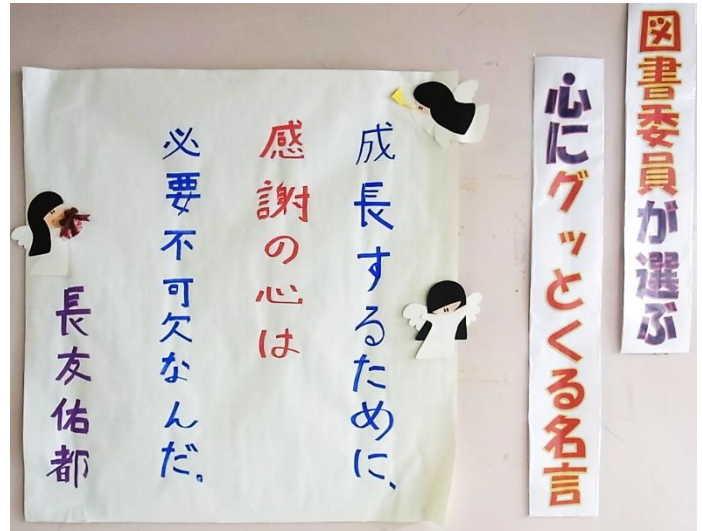 図書委員が選ぶ
心にグッとくる名言
成長するために、
感謝の心は
必要不可欠なんだ。
長友佑都